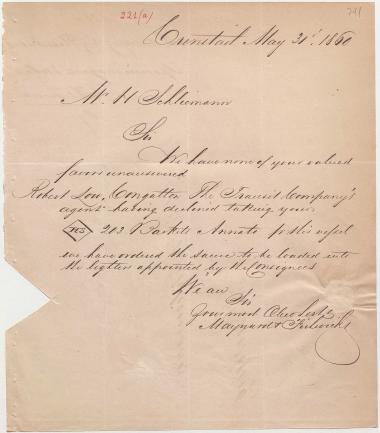 221(a)
Cronstadt May 31st 1860
Mr H Schliemann
Sir
We have none of your valued
favors unanswered
Robert Low, The Transit Company's
agent having declined taking your
203 Baskets Annato p this vessel
we have ordered the same to be loaded into
the lighter appointed by the Consignees
We are
Sir
Your most Obed
Maynard &